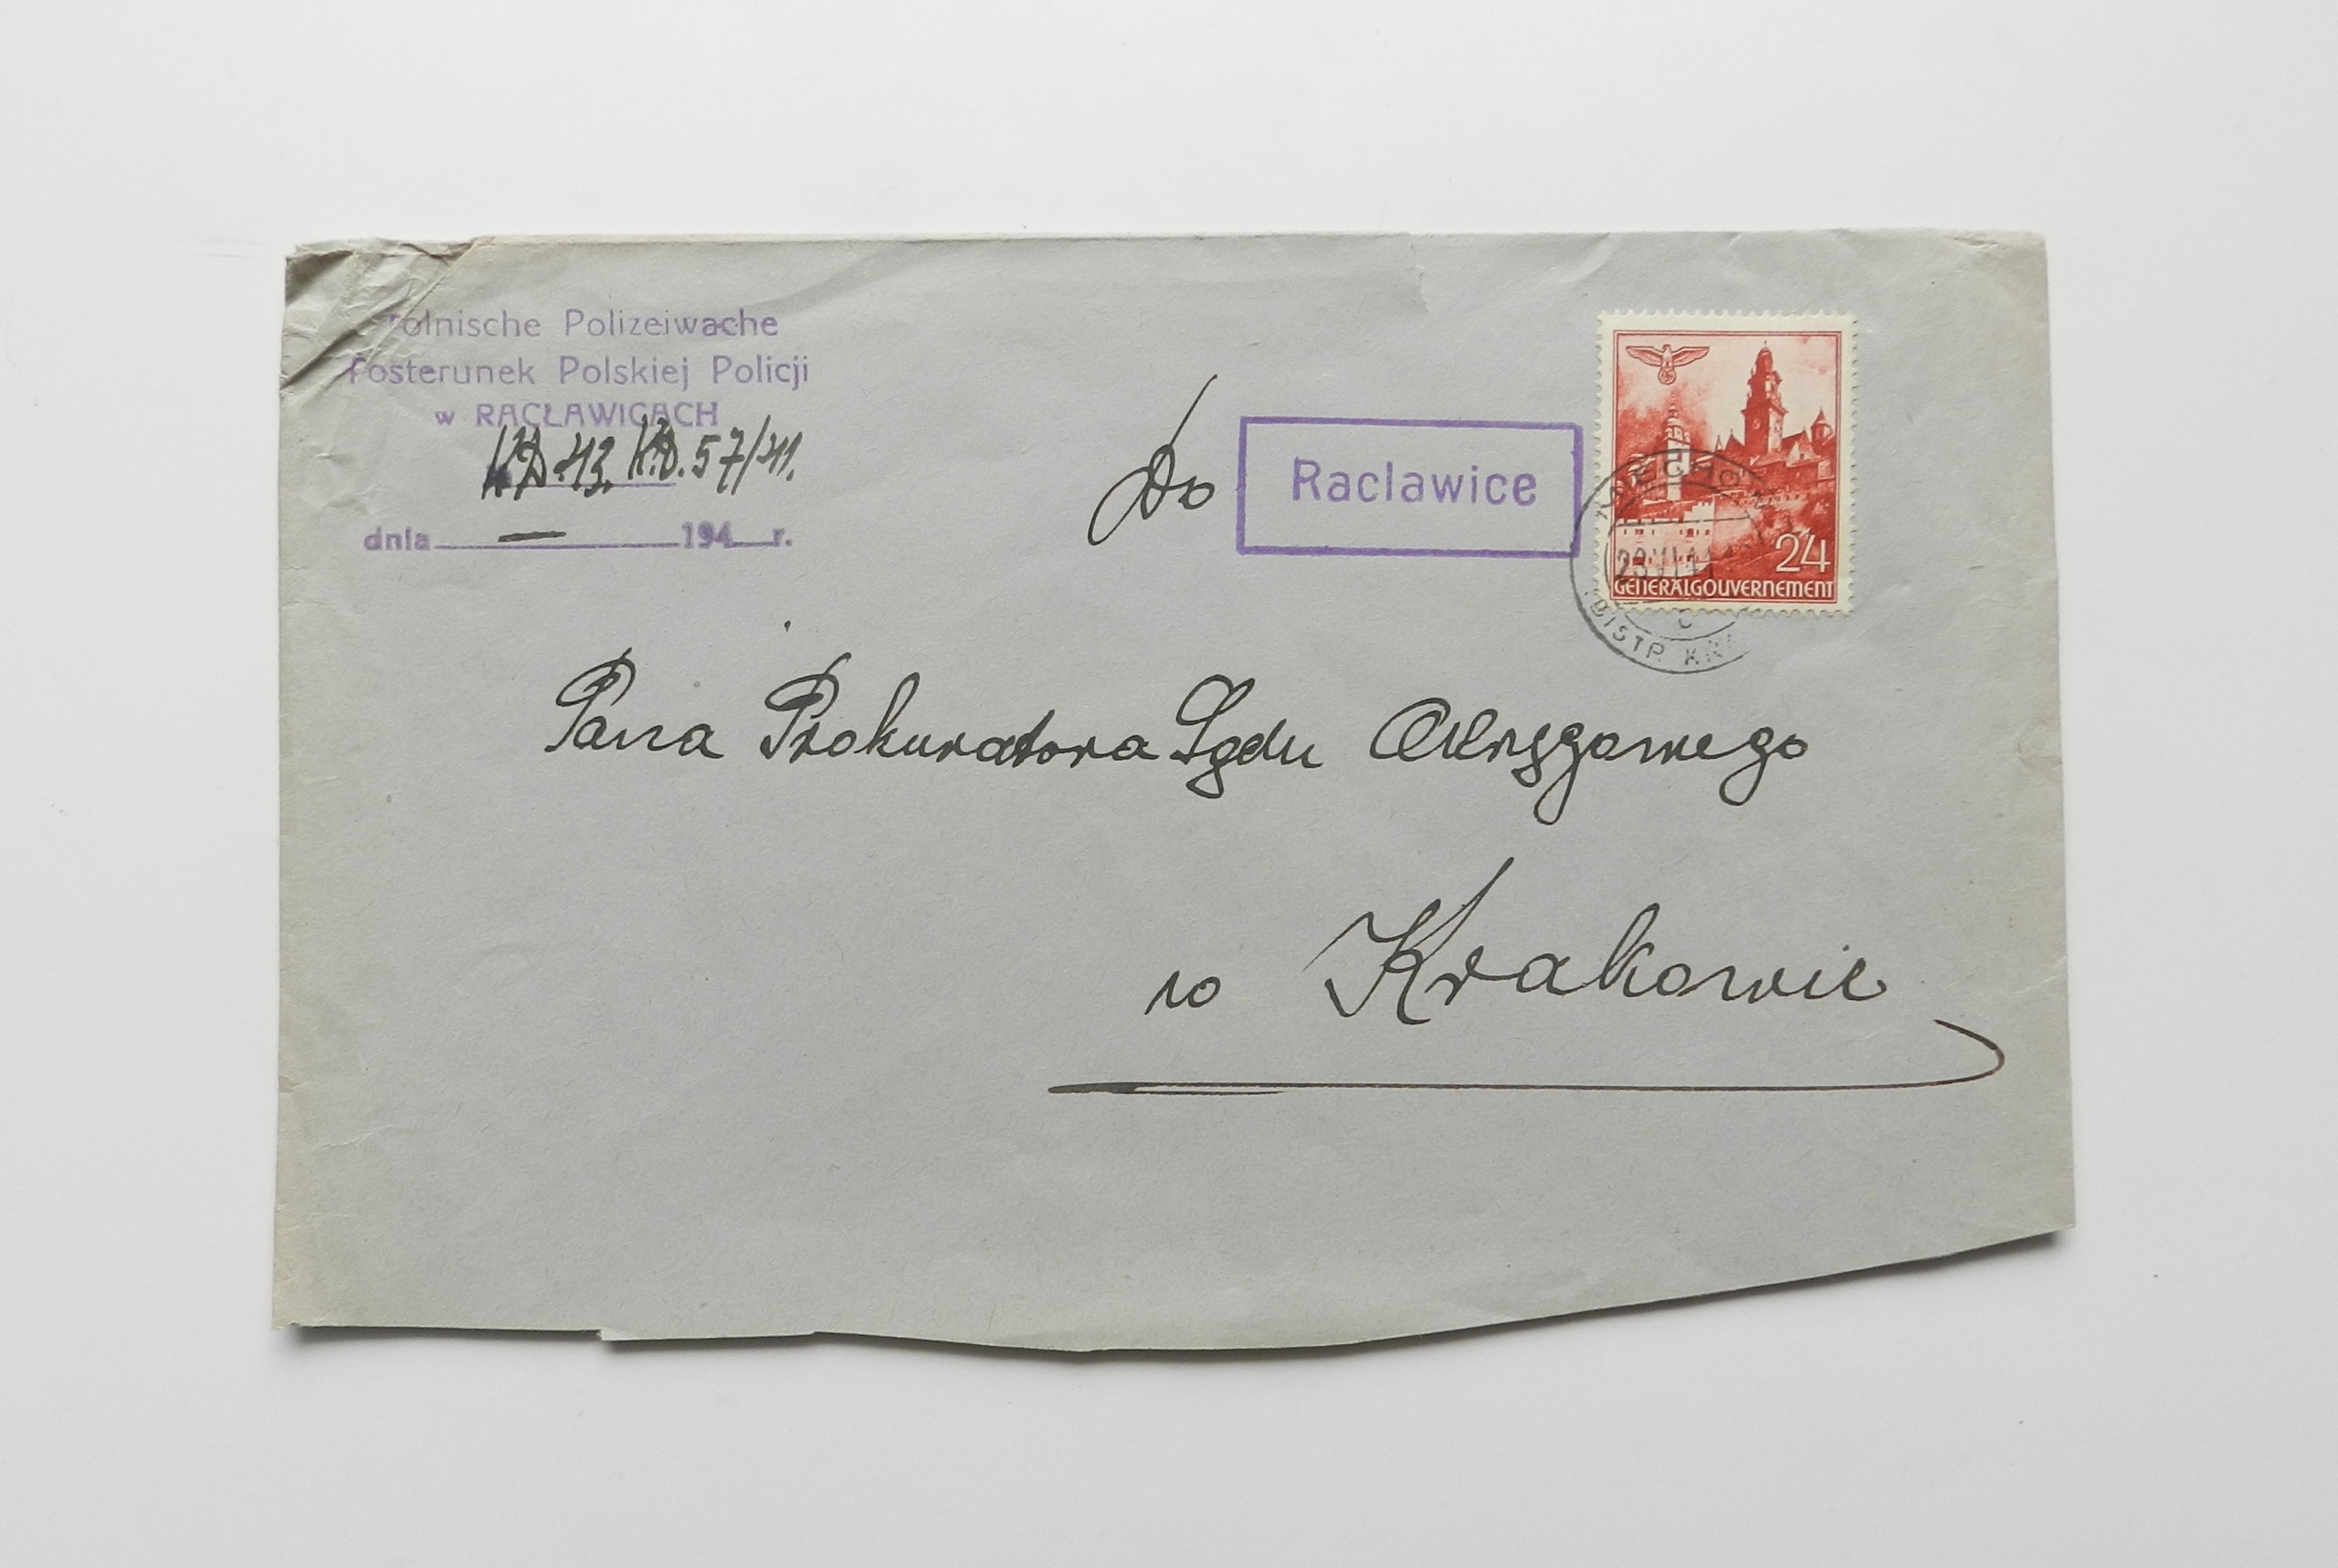 Polnische Polizeiwache
Posterunek Polskiej Policji
w RACŁAWICACH
KD.43. KD.57/41.
dnia 194 r.
Do
Raclawice
24
GENERALGOUVERNEMENT
MIECHOW
DISTR. KR
Pana Prokuratora Sądu Okręgowego
w Krakowie